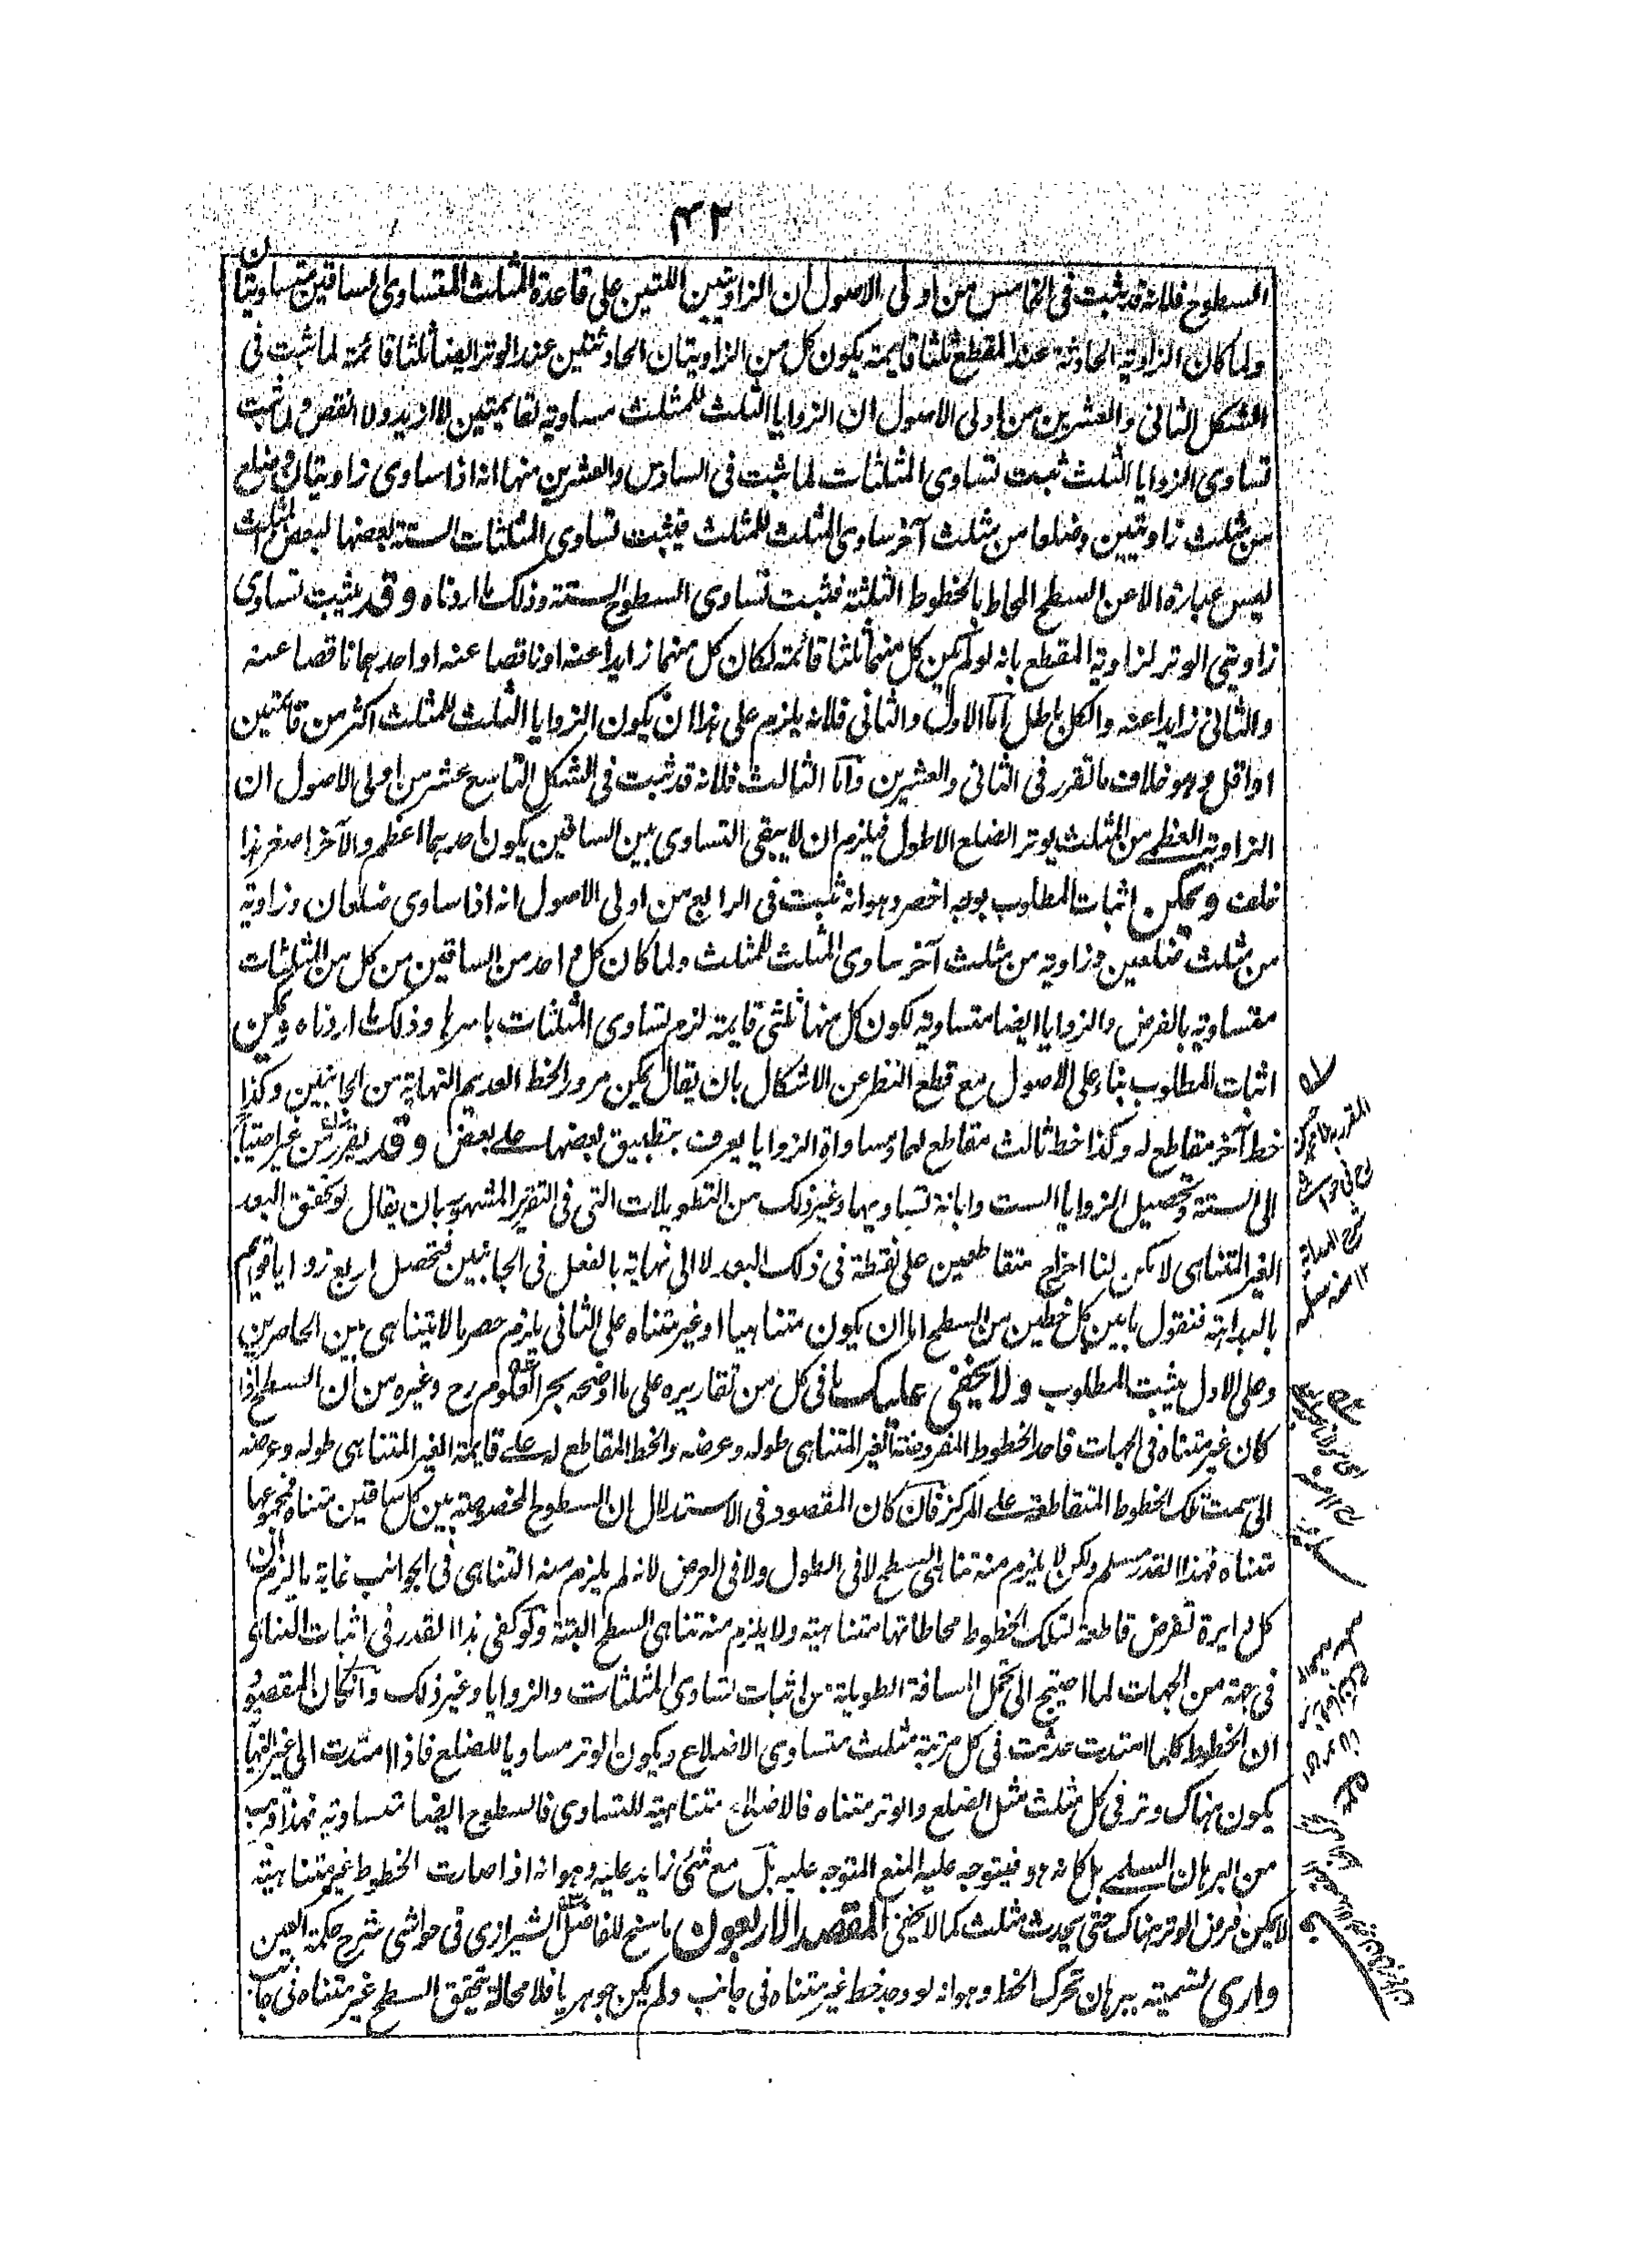 ٤٢
السطوح فلانه قد ثبت فى الخامس من اولى الاصول ان الزاويتين اللتين على قاعدة المثلث المتساوى الساقين متساويتان
ولما كان الزاوية الحادثة عند المقطع ثلثا قايمة يكون كل من الزاويتان الحادثتين عند الوتر ايضا ثلثا قائمة لما ثبت فى
الشكل الثانى والعشرين من اولى الاصول ان الزوايا الثلث للمثلث مساوية لقايمتين لا ازيد ولا انقص واذا ثبت
تساوى الزوايا الثلث ثبت تساوى المثلثات لما ثبت فى السادس والعشرين منها انه اذا ساوى زاويتان وضلع
من مثلث زاويتين وضلعا من مثلث آخر ساوى المثلث للمثلث فيثبت تساوى المثلثات الستة بعضها لبعض والمثلث
ليس عبارة الا عن السطح المحاط بالخطوط الثلثة فثبت تساوى السطوح الستة وذلك ما اردناه وقد يثبت تساوى
زاويتى الوتر لزاوية المقطع بانه لو لم يكن كل منهما ثلثا قائمة لكان كل منهما زايدا عنه او ناقصا عنه او احدهما ناقصا عنه
والثانى زايدا عنه والكل باطل اما الاول والثانى فلانه يلزم على هذا ان يكون الزوايا الثلث للمثلث اكثر من قائمتين
او اقل وهو خلاف ما تقرر فى الثانى والعشرين واما الثالث فلانه قد ثبت فى الشكل التاسع عشر من اولى الاصول ان
الزاوية العظمى من المثلث يوتر الضلع الاطول فيلزم ان لا يبقى التساوى بين الساقين يكون احدهما اعظم والآخر اصغر هذا
خلف ويمكن اثبات المطلوب بوجه اخصر وهو انه ثبت فى الرابع من اولى الاصول انه اذا ساوى ضلعان وزاوية
من مثلث ضلعين وزاوية من مثلث آخر ساوى المثلث للمثلث ولما كان كل واحد من الساقين من كل من المثلثات
متساوية بالفرض والزوايا ايضا متساوية لكون كل منها ثلثى قايمة لزم تساوى المثلثات باسرها وذلك ما اردناه ويمكن
اثبات المطلوب بناء على الاصول مع قطع النظر عن الاشكال بان يقال يمكن مرور الخط العديم النهاية من الجانبين وكذا
خط آخر مقاطع له وكذا خط ثالث مقاطع لهما ومساواة الزوايا يعرف بتطبيق بعضها على بعض وقد يقرر من غير احتياج
الى الستة وتحصيل الزوايا الست وابانة تساويها وغير ذلك من التطويلات التى فى التقرير المشهور بان يقال لو تحقق البعد
الغير المتناهى لامكن لنا اخراج متقاطعين على نقطة فى ذلك البعد لا الى نهاية بالفعل فى الجانبين فتحصل اربع زوايا قوايم
بالبداهة فنقول ما بين كل خطين من السطح اما ان يكون متناهيا او غير متناه على الثانى يلزم حصر ما لا يتناهى بين الحاصرين
وعلى الاول يثبت المطلوب ولا يخفى عليك ما فى كل من تقاريره على ما اوضحه بحر العلوم رح وغيره من ان السطح اذا
كان غير متناه فى الجهات فاحد الخطوط المفروضة الغير المتناهى طوله وعرضه والخط المقاطع له على قايمة الغير المتناهى طوله وعرضه
الى سمت تلك الخطوط المتقاطعة على المركز فان كان المقصود فى الاستدلال ان السطوح المخصوصة بين كل ساقين متناه فمجموعها
متناه فهذا القدر مسلم ولكن لا يلزم منه تناهى السطح لا فى الطول ولا فى العرض لانه لم يلزم منه التناهى فى الجوانب غاية ما لزم ان
كل دايرة تفرض قاطعة لتلك الخطوط محاطاتها متناهية ولا يلزم منه تناهى السطح البتة ولو كفى هذا القدر فى اثبات التناهى
فى جهة من الجهات لما احتيج الى تحمل المسافة الطويلة من اثبات تساوى المثلثات والزوايا وغير ذلك وان كان المقصود
ان الخطوط كلما امتدت حدثت فى كل مرتبة مثلث متساوى الاضلاع ويكون الوتر مساويا للضلع فاذا امتدت الى غير النهاية
يكون هناك وتر فى كل مثلث مثل الضلع والوتر متناه فالاضلاع متناهية للتساوى فالسطوح ايضا متساوية فهذا قريب
من البرهان السلمى بل كانه هو فيتوجه عليه المنع المتوجه عليه بل مع شئ زايد عليه وهو انه اذا صارت الخطوط غير متناهية
لا يمكن فرض الوتر هناك حتى يحدث مثلث كما لا يخفى المقصد الاربعون ما سنح للفاضل الشيرازى فى حواشى شرح حكمة العين
وارى تسميته ببرهان تحرك الخط وهو انه لو وجد خط غير متناه فى جانب ولم يكن جوهريا فلا محالة يتحقق السطح غير متناه فى جانب